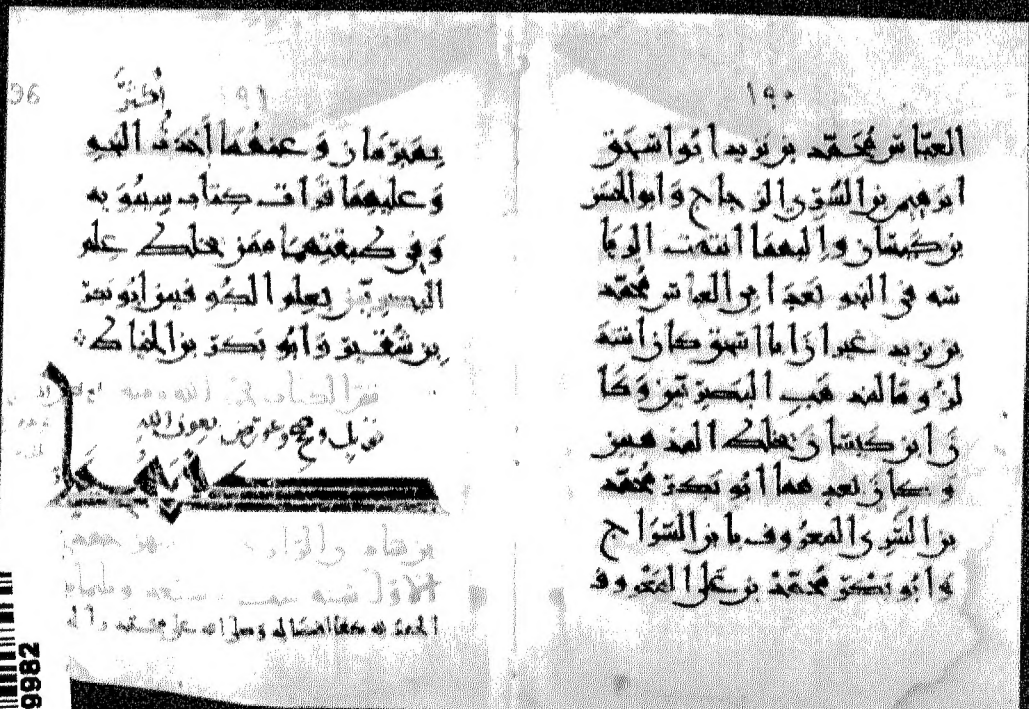 ١٩٠
العباس محمد بن يزيد ابو اسحق
ابرهيم بن السري الزجاج وابو الحسن
بن كيسان واليهما انتهت الريا
سه في النحو بعد ابي العباس محمد
بن يزيد غير ان ابا اسحق كان اشد
لزوما لمذهب البصريين وكا
ن ابن كيسان يخلط المذهبين
وكان بعدهما ابو بكر محمد
بن السري المعروف بابن السراج
وابو بكر محمد بن علي المعروف
96
١٩١
بمبرمان وعنهما اخذت النحو
وعليهما قرات كتاب سيبويه
وفي طبقتهما ممن يخلط علم
البصريين بعلم الكوفيين ابو بكر
بن شقير وابو بكر بن الخياط
قوبل وصح وعورض بعون الله
الاول
الحمد لله وصلى الله على محمد واله
9982